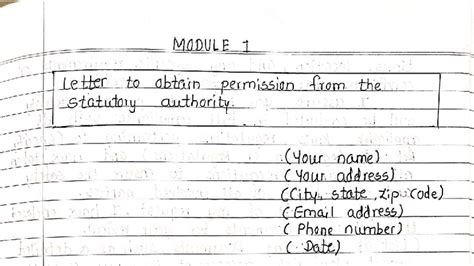 MODULE 1
Letter to obtain permission from the
statutory authority.
(Your name)
(Your address)
(City, state, zip code)
(Email address)
(Phone number)
(Date)